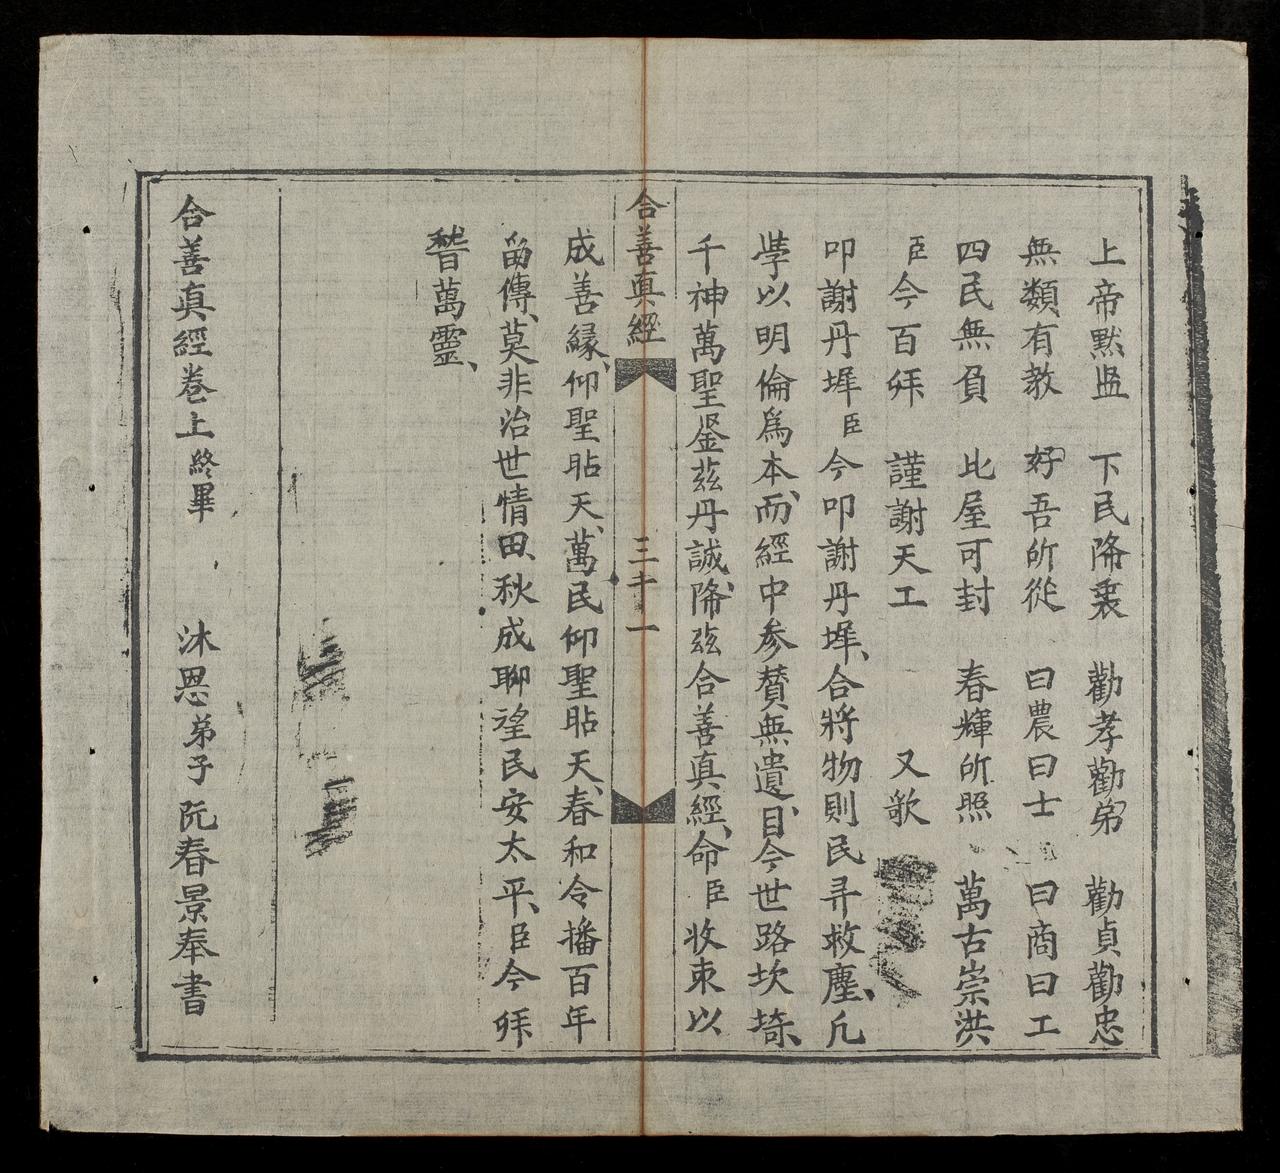 上帝默监　下民降衷　勸孝勸弟　勸貞勸忠
無類有教　好吾所從　曰農曰士　曰商曰工
四民無負　比屋可封　春輝所照　萬古崇洪
臣今百拜　謹謝天工　又歌
叩謝丹墀臣今叩謝丹墀、合將物則民彛救塵、凢
斈以明倫爲本、而經中参賛無遺、目今世路坎埼、
千神萬聖鉴茲丹誠、降茲合善真經、命臣收束以
合善真經
三十一
成善緣、仰聖阽天、萬民仰聖阽天、春和令播百年
畱傳、莫非治世情田、秋成聊望民安太平、臣今拜
朁萬靈、
合善真經卷上終畢　沐恩弟子阮春景奉書